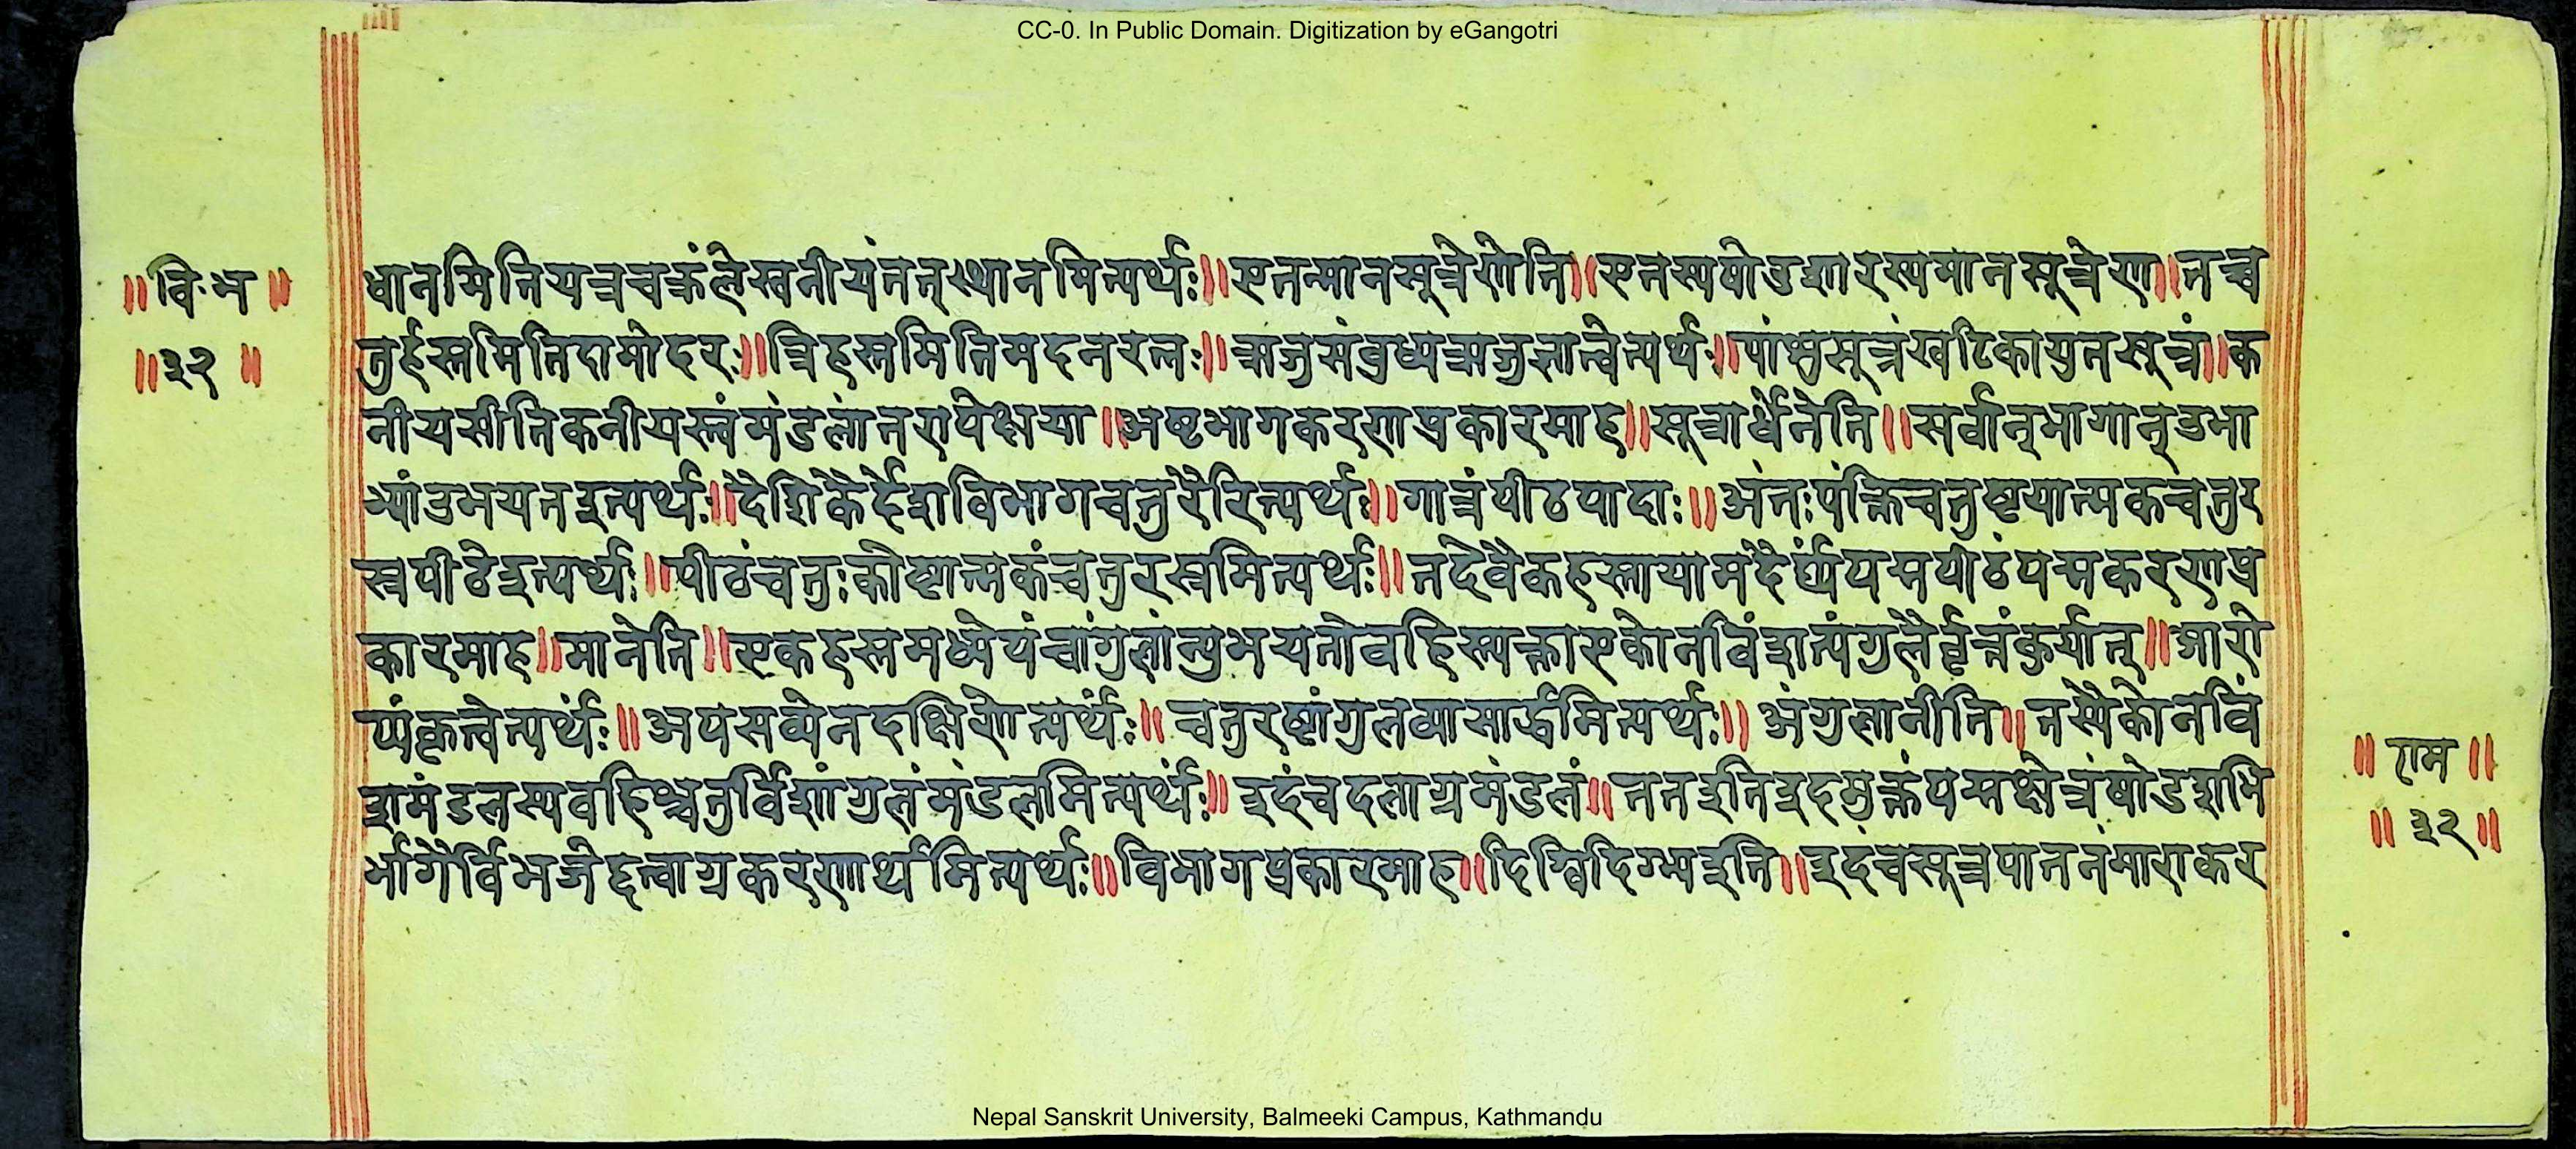 CC-0. In Public Domain. Digitization by eGangotri
॥वि॰भ॥
॥३२॥
धानमितियत्रचक्रंलेखनीयंतत्स्थानमित्यर्थः॥एतन्मानसूत्रेणेति॥एतस्यषोडशारस्यमानसूत्रेण॥तच्च
तुर्हस्तमितिदामोदरः॥त्रिहस्तमितिमदनरत्नः॥ऋजुसंबुध्यऋजुज्ञात्वेत्यर्थः॥पांशुसूत्रंखटिकायुतसूत्रं॥क
नीयसीतिकनीयस्त्वंमंडलांतरापेक्षया॥अष्टभागकरणप्रकारमाह॥सूत्रार्धेनेति॥सर्वान्भागान्उभा
भ्यांउभयतइत्यर्थः॥देशिकैर्देशविभागचतुरैरित्यर्थः॥गात्रंपीठपादाः॥अंतःपंक्तिचतुष्टयात्मकचतुर
स्रपीठेइत्यर्थः॥पीठंचतुःकोष्टात्मकंचतुरस्रमित्यर्थः॥तदेवैकहस्तायामदैर्घ्यपद्मपीठंपद्मकरणप्र
कारमाह॥मानेति॥एकहस्तमध्येपंचांगुलान्युभयतोवहिस्त्यक्त्वाएकोनविंशत्यंगुलैर्वृत्तंकुर्यात्॥आरो
प्यंकृत्वेत्यर्थः॥अपसव्येनदक्षिणेत्यर्थः॥चतुरष्टांगुलव्यासार्द्धमित्यर्थः॥अंगुलानीति॥तस्यैकोनविं
शमंडलस्यवहिश्चतुर्विंशांगुलंमंडलमित्यर्थः॥इदंचदलाग्रमंडलं॥ततइतिइदमुक्तंपद्मक्षेत्रंषोडशभि
र्भागैर्विभजेद्दत्वाग्रकरणार्थमित्यर्थः॥विभागप्रकारमाह॥दिग्विदिग्भ्यइति॥इदंचसूत्रपातनंमाराकर
॥राम॥
॥३२॥
Nepal Sanskrit University, Balmeeki Campus, Kathmandu